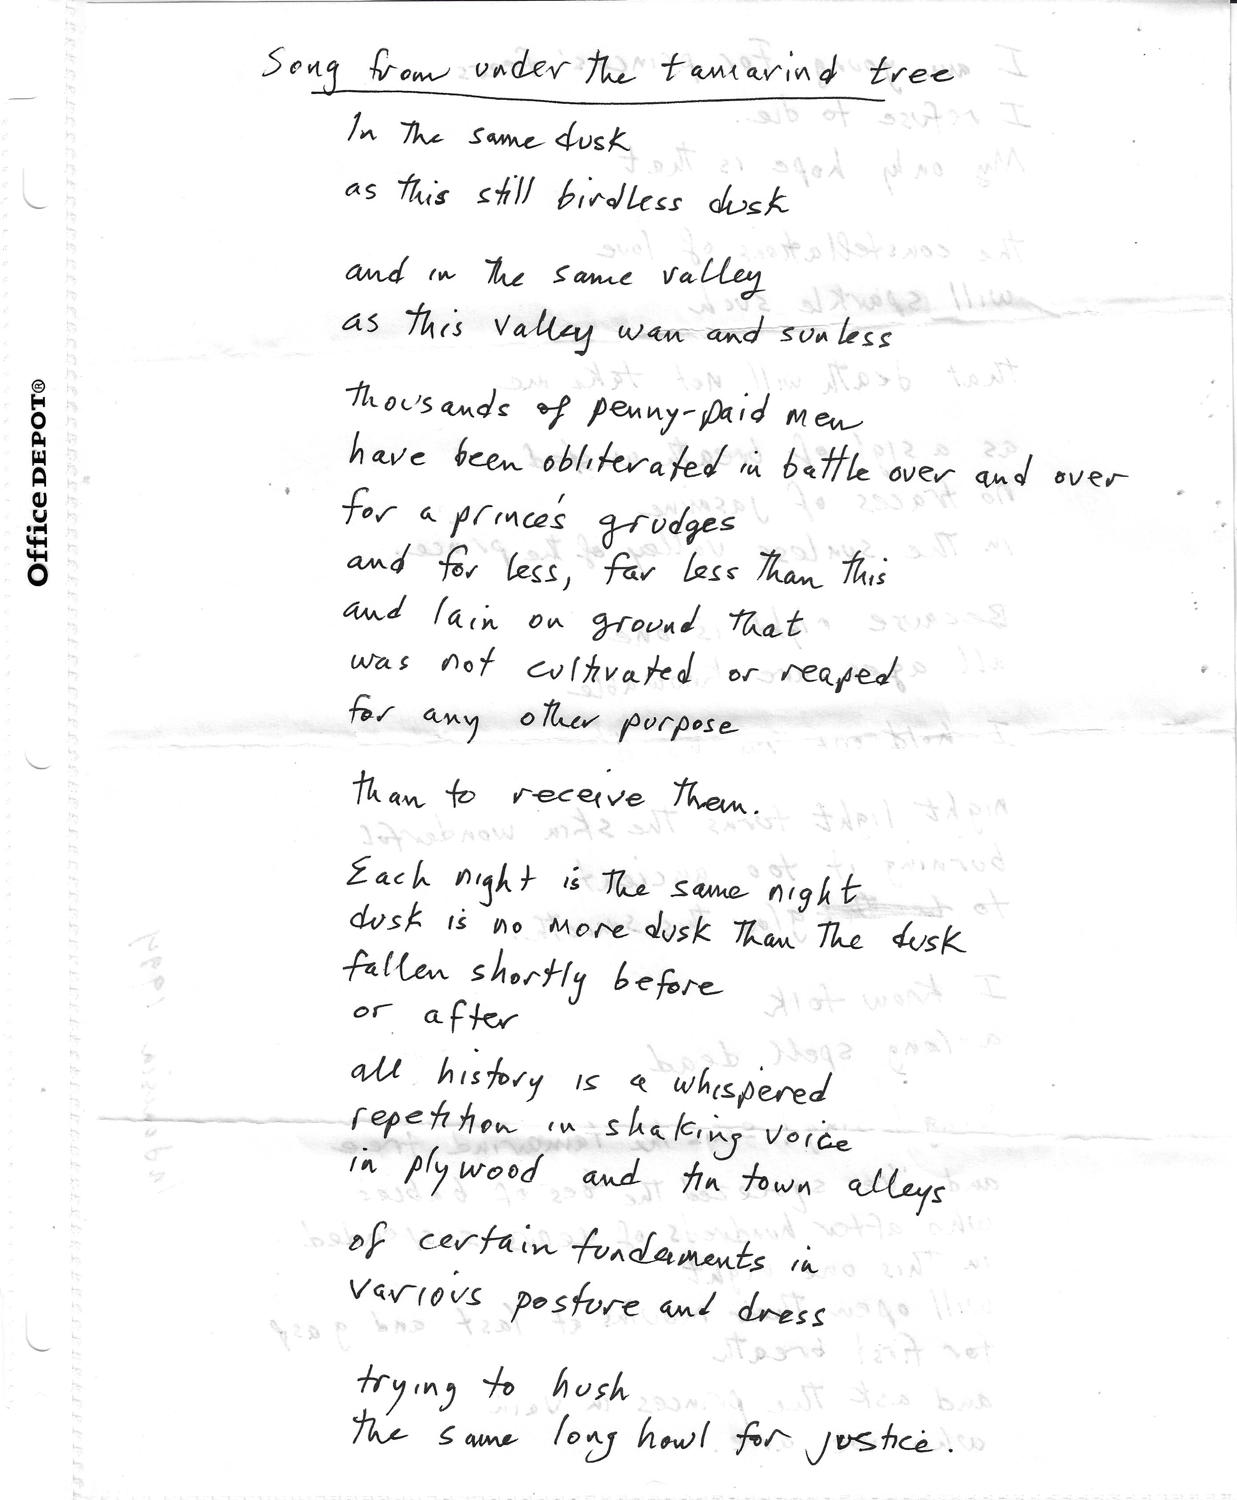 Song from under the tamarind tree
In the same dusk
as this still birdless dusk
and in the same valley
as this valley wan and sunless
thousands of penny-paid men
have been obliterated in battle over and over
for a prince's grudges
and for less, far less than this
and lain on ground that
was not cultivated or reaped
for any other purpose
than to receive them.
Each night is the same night
dusk is no more dusk than the dusk
fallen shortly before
or after
all history is a whispered
repetition in shaking voice
in plywood and tin town alleys
of certain fundaments in
various posture and dress
trying to hush
the same long howl for justice.
Office DEPOT®